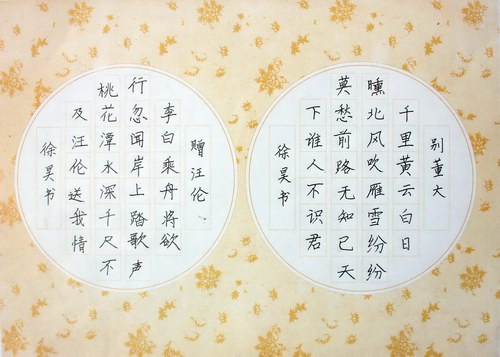 别董大
千里黄云白日
曛北风吹雁雪纷纷
莫愁前路无知已天
下谁人不识君
徐昊书
赠汪伦
李白乘舟将欲
行忽闻岸上踏歌声
桃花潭水深千尺不
及汪伦送我情
徐昊书